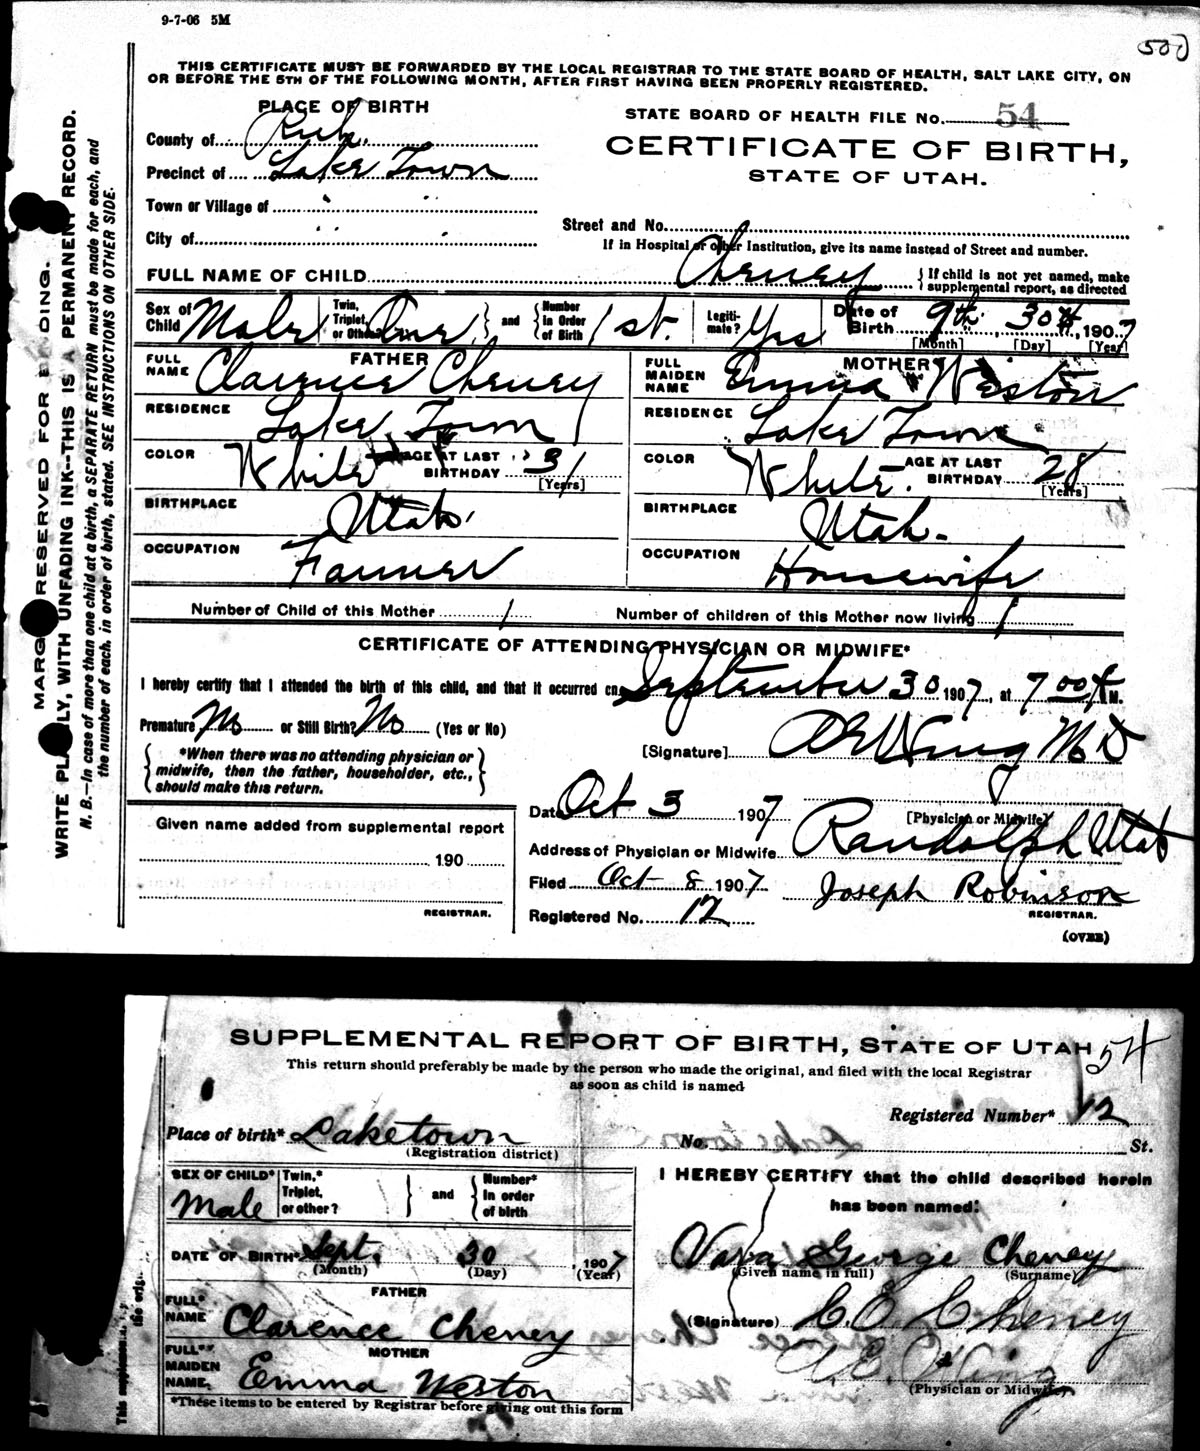 9-7-06 5M
500
THIS CERTIFICATE MUST BE FORWARDED BY THE LOCAL REGISTRAR TO THE STATE BOARD OF HEALTH, SALT LAKE CITY, ON
OR BEFORE THE 5TH OF THE FOLLOWING MONTH, AFTER FIRST HAVING BEEN PROPERLY REGISTERED.
PLACE OF BIRTH
County of Rich.
Precinct of Lake Town
Town or Village of
City of
STATE BOARD OF HEALTH FILE No. 54
CERTIFICATE OF BIRTH,
STATE OF UTAH.
Street and No.
If in Hospital or other Institution, give its name instead of Street and number.
FULL NAME OF CHILD Cheney { If child is not yet named, make
supplemental report, as directed
Sex of Child Male Twin, Triplet, or Other? One } and { Number in Order of Birth 1st. Legiti-mate? Yes Date of Birth 9th. 30th, 1907
[Month] [Day] [Year]
FATHER
FULL NAME Clarence Cheney
RESIDENCE Lake Town
COLOR White AGE AT LAST BIRTHDAY 31
[Years]
BIRTHPLACE Utah.
OCCUPATION Farmer
MOTHER
FULL MAIDEN NAME Emma Weston
RESIDENCE Lake Town
COLOR White. AGE AT LAST BIRTHDAY 28
[Years]
BIRTHPLACE Utah.
OCCUPATION Housewife
Number of Child of this Mother 1 Number of children of this Mother now living 1
CERTIFICATE OF ATTENDING PHYSICIAN OR MIDWIFE*
I hereby certify that I attended the birth of this child, and that it occurred on September 30 1907, at 7 00 A M.
Premature No or Still Birth? No (Yes or No)
{ *When there was no attending physician or
midwife, then the father, householder, etc.,
should make this return. }
[Signature] A E Wing M D
[Physician or Midwife]
Date Oct 3 1907
Address of Physician or Midwife Randolph Utah
Filed Oct 8 1907 Joseph Robinson
REGISTRAR.
Registered No. 12
(OVER)
Given name added from supplemental report
190
REGISTRAR.
MARGIN RESERVED FOR BINDING.
WRITE PLAINLY, WITH UNFADING INK--THIS IS A PERMANENT RECORD.
N. B.—In case of more than one child at a birth, a SEPARATE RETURN must be made for each, and
the number of each, in order of birth, stated. SEE INSTRUCTIONS ON OTHER SIDE.
SUPPLEMENTAL REPORT OF BIRTH, STATE OF UTAH 54
This return should preferably be made by the person who made the original, and filed with the local Registrar
as soon as child is named
Registered Number* 12
Place of birth* Laketown No. St.
(Registration district)
SEX OF CHILD* Male Twin,* Triplet, or other? } and { Number* in order of birth
DATE OF BIRTH* Sept. 30, 1907
(Month) (Day) (Year)
FATHER
FULL* NAME Clarence Cheney
MOTHER
FULL* MAIDEN NAME. Emma Weston
*These items to be entered by Registrar before giving out this form
I HEREBY CERTIFY that the child described herein
has been named:
Vava George Cheney
(Given name in full) (Surname)
(Signature) C. E. Cheney
A. E. Wing
(Physician or Midwife)